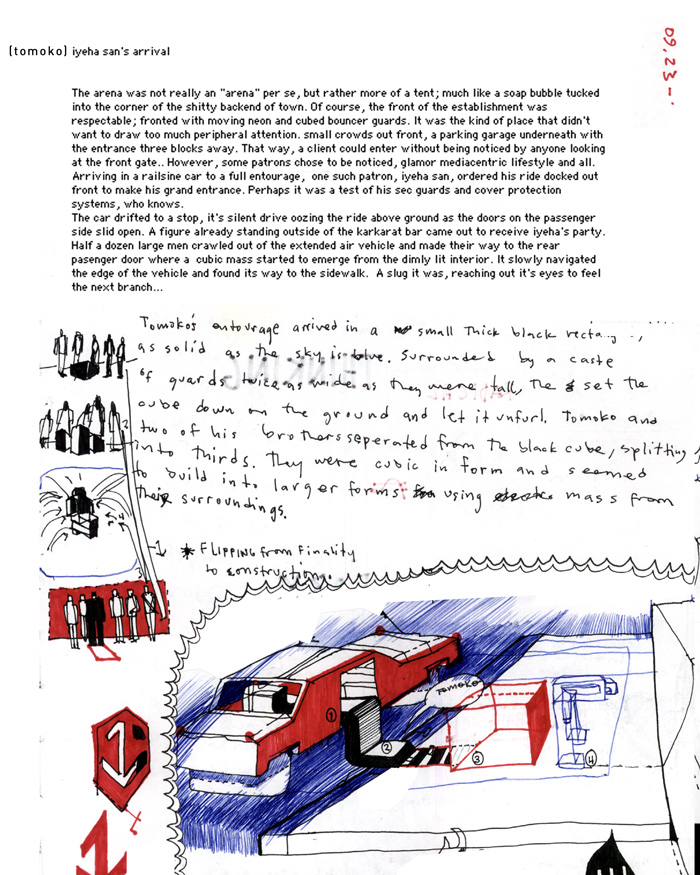 (tomoko) iyeha san's arrival
09.23
The arena was not really an "arena" per se, but rather more of a tent; much like a soap bubble tucked
into the corner of the shitty backend of town. Of course, the front of the establishment was
respectable; fronted with moving neon and cubed bouncer guards. It was the kind of place that didn't
want to draw too much peripheral attention. small crowds out front, a parking garage underneath with
the entrance three blocks away. That way, a client could enter without being noticed by anyone looking
at the front gate.. However, some patrons chose to be noticed, glamor mediacentric lifestyle and all.
Arriving in a railsine car to a full entourage, one such patron, iyeha san, ordered his ride docked out
front to make his grand entrance. Perhaps it was a test of his sec guards and cover protection
systems, who knows.
The car drifted to a stop, it's silent drive oozing the ride above ground as the doors on the passenger
side slid open. A figure already standing outside of the karkarat bar came out to receive iyeha's party.
Half a dozen large men crawled out of the extended air vehicle and made their way to the rear
pasenger door where a cubic mass started to emerge from the dimly lit interior. It slowly navigated
the edge of the vehicle and found its way to the sidewalk. A slug it was, reaching out it's eyes to feel
the next branch...
Tomoko's entourage arrived in a small thick black
as solid as the sky is blue. Surrounded by a caste
of guards twice as wide as they were tall, the set the
cube down on the ground and let it unfurl. Tomoko and
two of his brothers seperated from the black cube, splitting
into thirds. They were cubic in form and seemed
to build into larger forms using mass from
their surroundings.
* FLIPPING from Finality
to construction.
TOMOKO
1
2
3
4
1
1